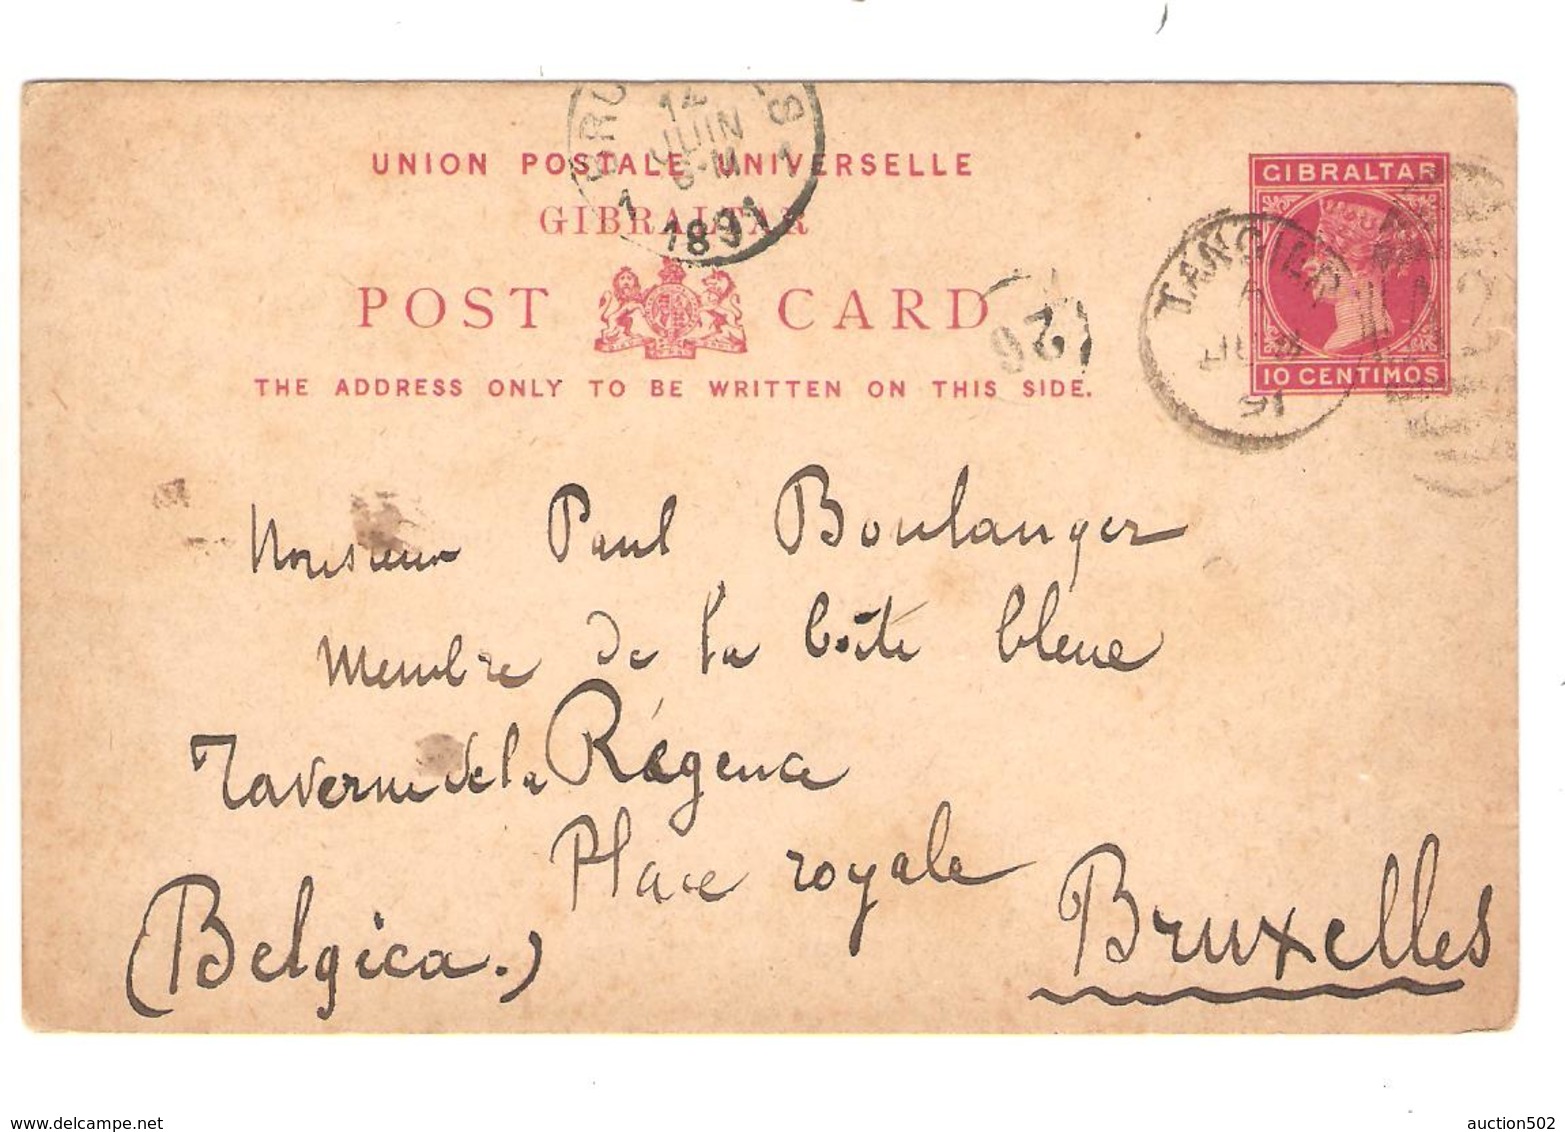 BRU
14
JUIN
6-M
1 1
1891
UNION POSTALE UNIVERSELLE
GIBRALTAR
POST CARD
THE ADDRESS ONLY TO BE WRITTEN ON THIS SIDE.
GIBRALTAR
10 CENTIMOS
TANGIER
91
26
Monsieur Paul Boulanger
Membre de la boîte bleue
Taverne de la Régence
Place royale
Bruxelles
(Belgica.)
www.delcampe.net
auction502